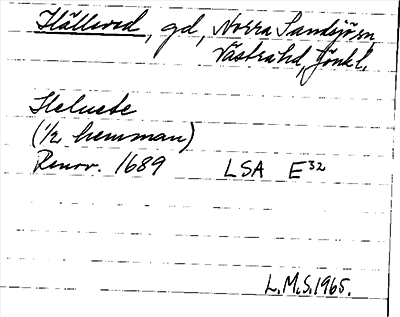 Hällerod, gd, Norra Sandsjö sn,
Västra hd, Jönkl.
Heluede
(1/2 hemman)
Renov. 1689 LSA E 32
L.M.S. 1965.